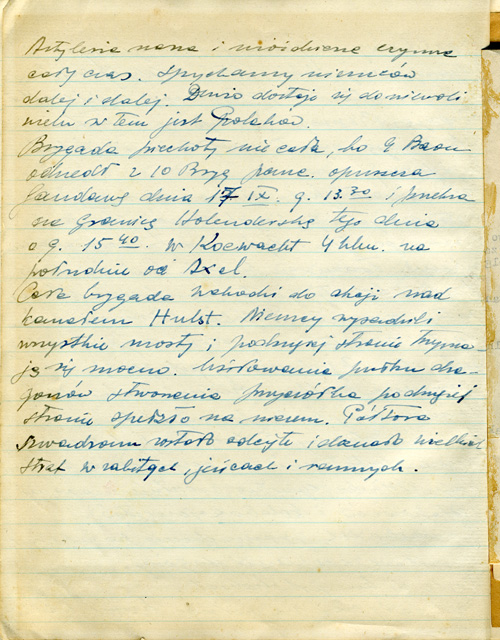 Artyleria nasza i nieprzyjac. czynne
cały czas. Spychamy niemców
dalej i dalej. Dużo dostaje się do niewoli
wielu w tem jest Polaków.
Brygada piechoty nie cała, bo 9 Baon
odszedł z 10 Bryg panc. opuszcza
Gandawę dnia 17 IX. g. 13.30 i przekra
cza Granicę Holenderską tego dnia
o g. 15 40. w Koewacht 4 klm. na
południe od Axel.
Cała brygada wchodzi do akcji nad
kanałem Hulst. Niemcy wysadzili
wszystkie mosty i po drugiej stronie trzyma-
ją się mocno. Usiłowania pułku dra-
gonów stworzenia przyczółka po drugiej
stronie spełzło na niczem. Półtora
szwadronu zostało odcięte i doznało wielkich
strat w zabitych, jeńcach i rannych.